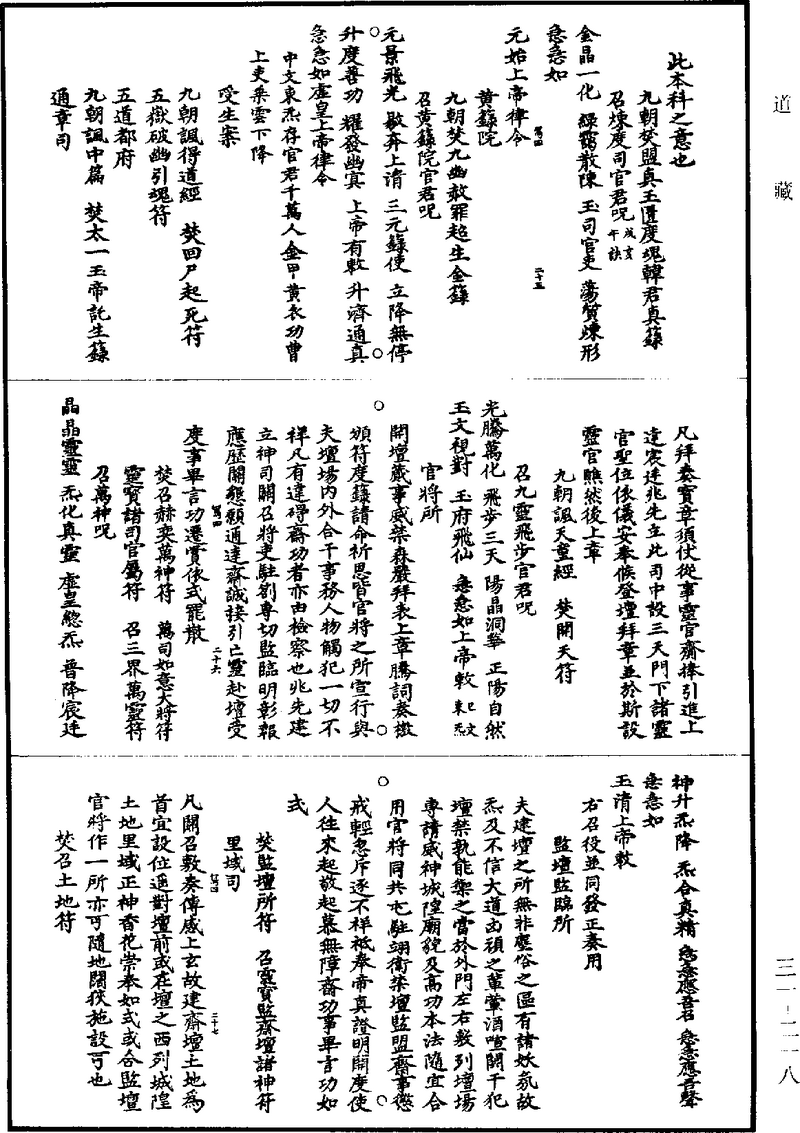 道藏
此本科之意也
九朝焚盟真玉匱度魂韓君真籙
召煉度司官君呪戌亥午訣
金晶一化 綠靄散陳 玉司官吏 蕩質煉形
急急如
元始上帝律令
萬四
二十五
黃籙院
九朝焚九幽赦罪超生金籙
召黃籙院官君呪
元景飛光 啟奔上清 三元籙使 立降無停
升度善功 耀發幽冥 上帝有敕 升濟通真
急急如虛皇上帝律令
申文東炁存官君千萬人金甲黃衣功曹
上吏乘雲下降
受生案
九朝諷得道經 焚回尸起死符
五嶽破幽引魂符
五道都府
九朝諷中篇 焚太一玉帝託生籙
通章司
凡拜奏寶章須仗從事靈官齎捧引進上
達宸廷兆先立此司中設三天門下諸靈
官聖位依儀安奉候登壇拜章並於斯設
靈官醮然後上章
九朝諷天童經 焚開天符
召九靈飛步官君呪
光騰萬化 飛步三天 陽晶洞擧 正陽自然
玉文視對 玉府飛仙 急急如上帝敕 巳文東炁
官將所
開壇蕆事威禁森嚴拜表上章騰詞奏檄
頒符度籙請命祈恩皆官將之所宣行與
夫壇場內外合干事務人物觸犯一切不
祥凡有違碍齋功者亦由檢察也兆先建
立神司關召將吏駐劄專切監臨明彰報
應歷關懇願通達齋誠接引亡靈赴壇受
萬四
二十六
度事畢言功遷賞依式罷散
焚召赫奕萬神符 萬司如意大將符
靈寶諸司官屬符 召三界萬靈符
召萬神呪
晶晶靈靈 炁化真靈 虛皇總炁 普降宸廷
神升炁降 炁合真精 急急應吾召 急急應吾聲
急急如
玉清上帝敕
右召役並同發正奏用
監壇監臨所
夫建壇之所無非塵俗之區有諸妖氛故
炁及不信大道凶頑之輩葷酒喧鬧干犯
壇禁孰能禦之當於外門左右敷列壇場
專請威神城隍廟貌及高功本法隨宜合
用官將同共屯駐翊衛禁壇監盟齋事懲
戒輕忽斥逐不祥祗奉帝真證明開度使
人往來起敬起慕無障齋功事畢言功如
式
焚監壇所符 召靈寶監齋壇諸神符
里域司
萬四
二十七
凡關召敷奏傳感上玄故建齋壇土地為
首宜設位逼對壇前或在壇之西列城隍
土地里域正神香花崇奉如式或合監壇
官將作一所亦可隨地闊狹施設可也
焚召土地符
三一-二一八